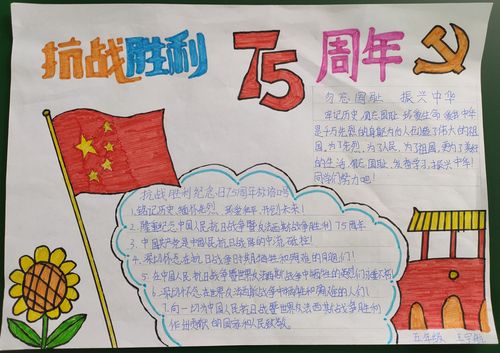 抗战胜利 75 周年
勿忘国耻 振兴中华
牢记历史,勿忘国耻,珍爱生命,爱我中华
是千万先烈的身躯为后人创造了伟大的祖
国,为了先烈,为了人民,为了祖国,更为了美好
的生活,勿忘国耻,发奋学习,振兴中华!
同学们努力吧!
抗战胜利纪念日75周年放语吗
1.铭记历史、缅怀先烈、珍爱和平、开创未来!
2.隆重纪念中国人民抗日战争暨世界反法西斯战争胜利75周年
3.中国共产党是中国人民抗日战争的中流砥柱!
4.深切怀念在抗日战争时期牺牲和遇难的同胞们!
5.在中国人民抗日战争暨世界反法西斯战争中牺牲的英烈们永垂不朽!
6.深切怀念在世界反法西斯战争中牺牲和遇难的人们!
7.向一切为中国人民抗日战争暨世界反法西斯战争胜利
作出贡献的国家和人民致敬。
五年级